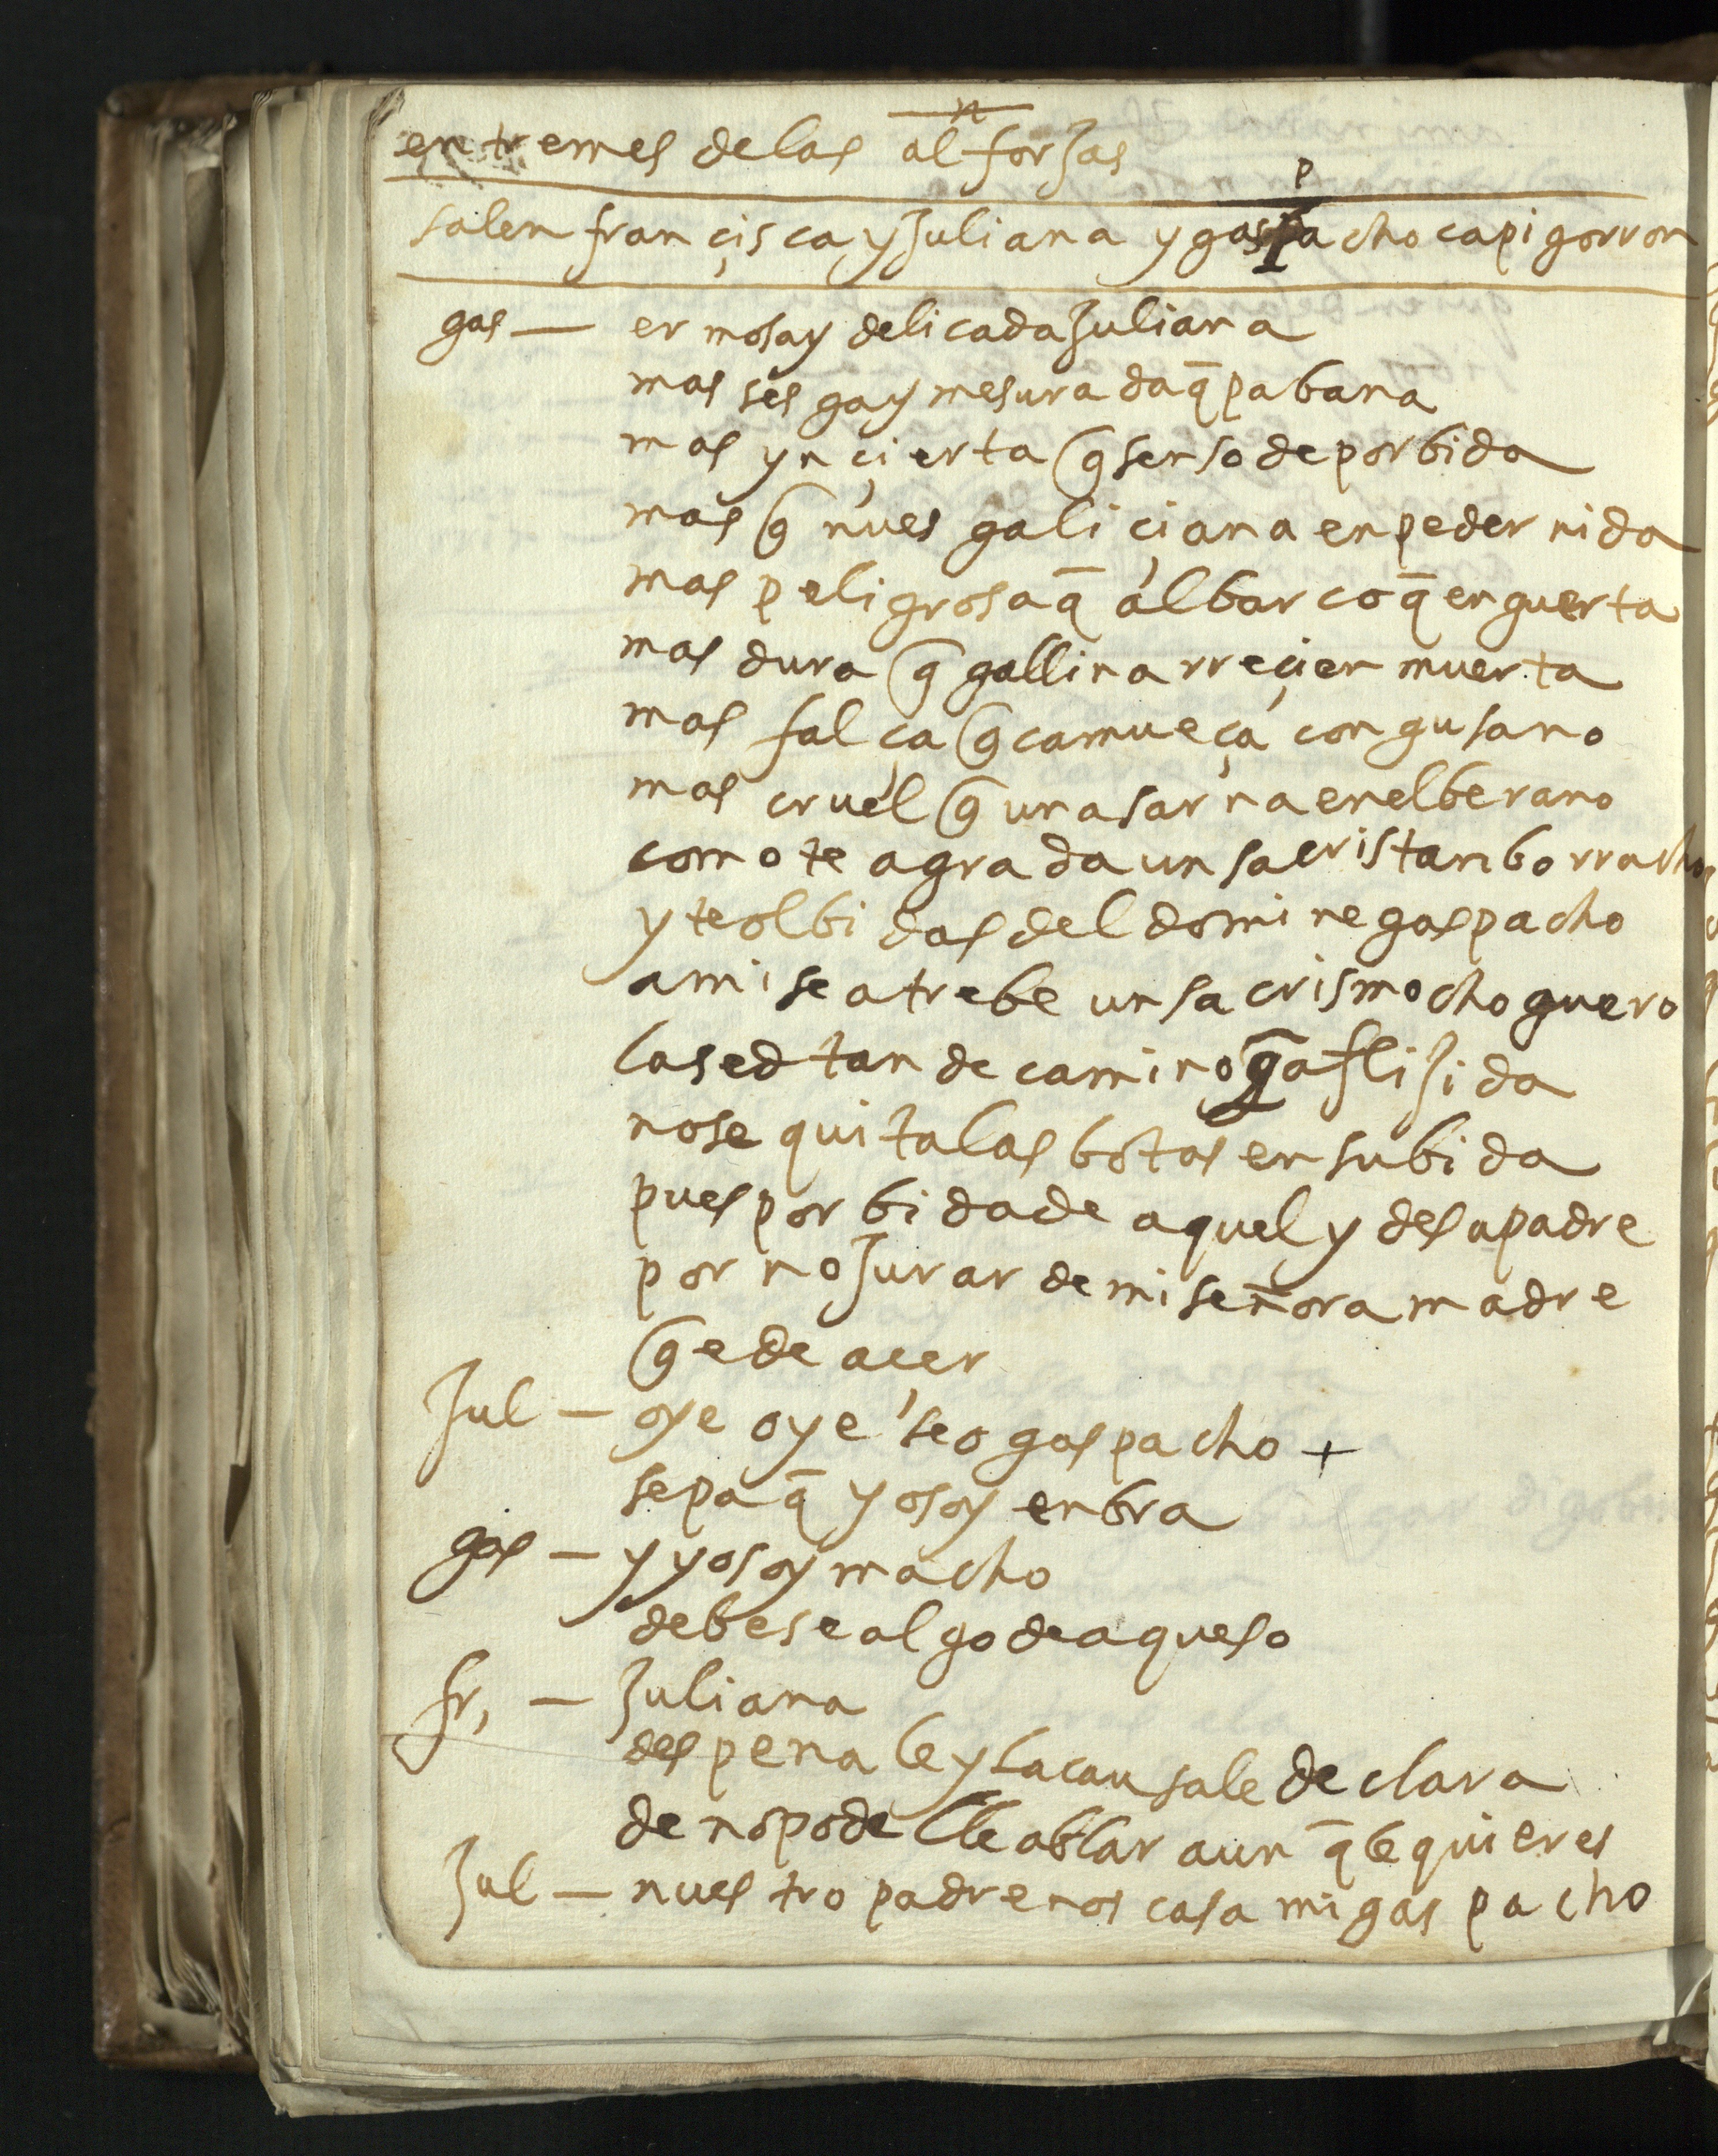 entremes de las alforjas
salen françisca y juliana y gaspacho capigorron
gas — ermosa y delicada juliana
mas sesga y mesurada q̄ pabana
mas ynçierta q̄ senso de por bida
mas q̄ nues galiçiana enpedernida
mas peligrosa q̄ albarcoq̄ en guerta
mas dura q̄ gallina rreçien muerta
mas falça q̄ camueça con gusano
mas cruel q̄ una sarna en el berano
como te agrada un sacristan borracho
y te olbidas del domine gaspacho
a mi se atrebe un sacrismocho guero
la sed tan de camino q̄ aflijida
no se quita las botas en su bida
pues por bida de aquel y desa padre
por no jurar de mi señora madre
q̄ e de açer
jul — oye oye seo gaspacho +
sepa q̄ yo soy enbra
gas — y yo soy macho
debese algo de aqueso
fr, — juliana
despenale y la causa le declara
de no podelle ablar aun q̄ le quieres
jul — nuestro padre nos casa mi gaspacho